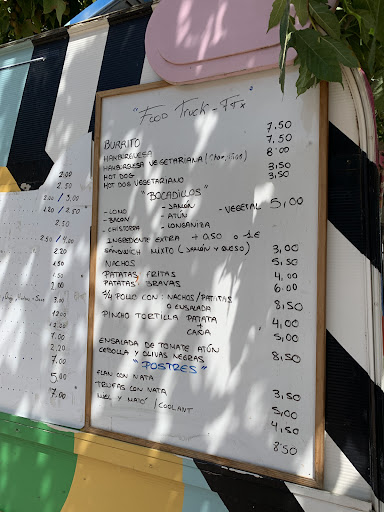 "Food Truck - FTX"
BURRITO 7,50
HAMBURGUESA 7,50
HAMBURGUESA VEGETARIANA 8'00
HOT DOG 3,50
HOT DOG VEGETARIANO 3,50
"BOCADILLOS"
- LOMO - JAMÓN - VEGETAL 5,00
- BACON - ATÚN
- CHISTORRA - LONGANIZA
INGREDIENTE EXTRA + 0,50 o 1€
SANDWICH MIXTO (JAMÓN y QUESO) 3,00
NACHOS 5,50
PATATAS FRITAS 4,00
PATATAS BRAVAS 6,00
1/4 POLLO CON: NACHOS/PATATAS 8,50
O ENSALADA
PINCHO TORTILLA PATATA 4,00
+
CAÑA 5,00
ENSALADA DE TOMATE ATÚN
CEBOLLA Y OLIVAS NEGRAS 8,50
"POSTRES"
FLAN CON NATA 3,50
TRUFAS CON NATA 5,00
MIEL Y MATÓ / COULANT 4,50
8'50
2.00
2.50
2.50 / 3.00
1.20 / 2.50
2.50 / 4.00
2.00
7.00
5.00
7.00